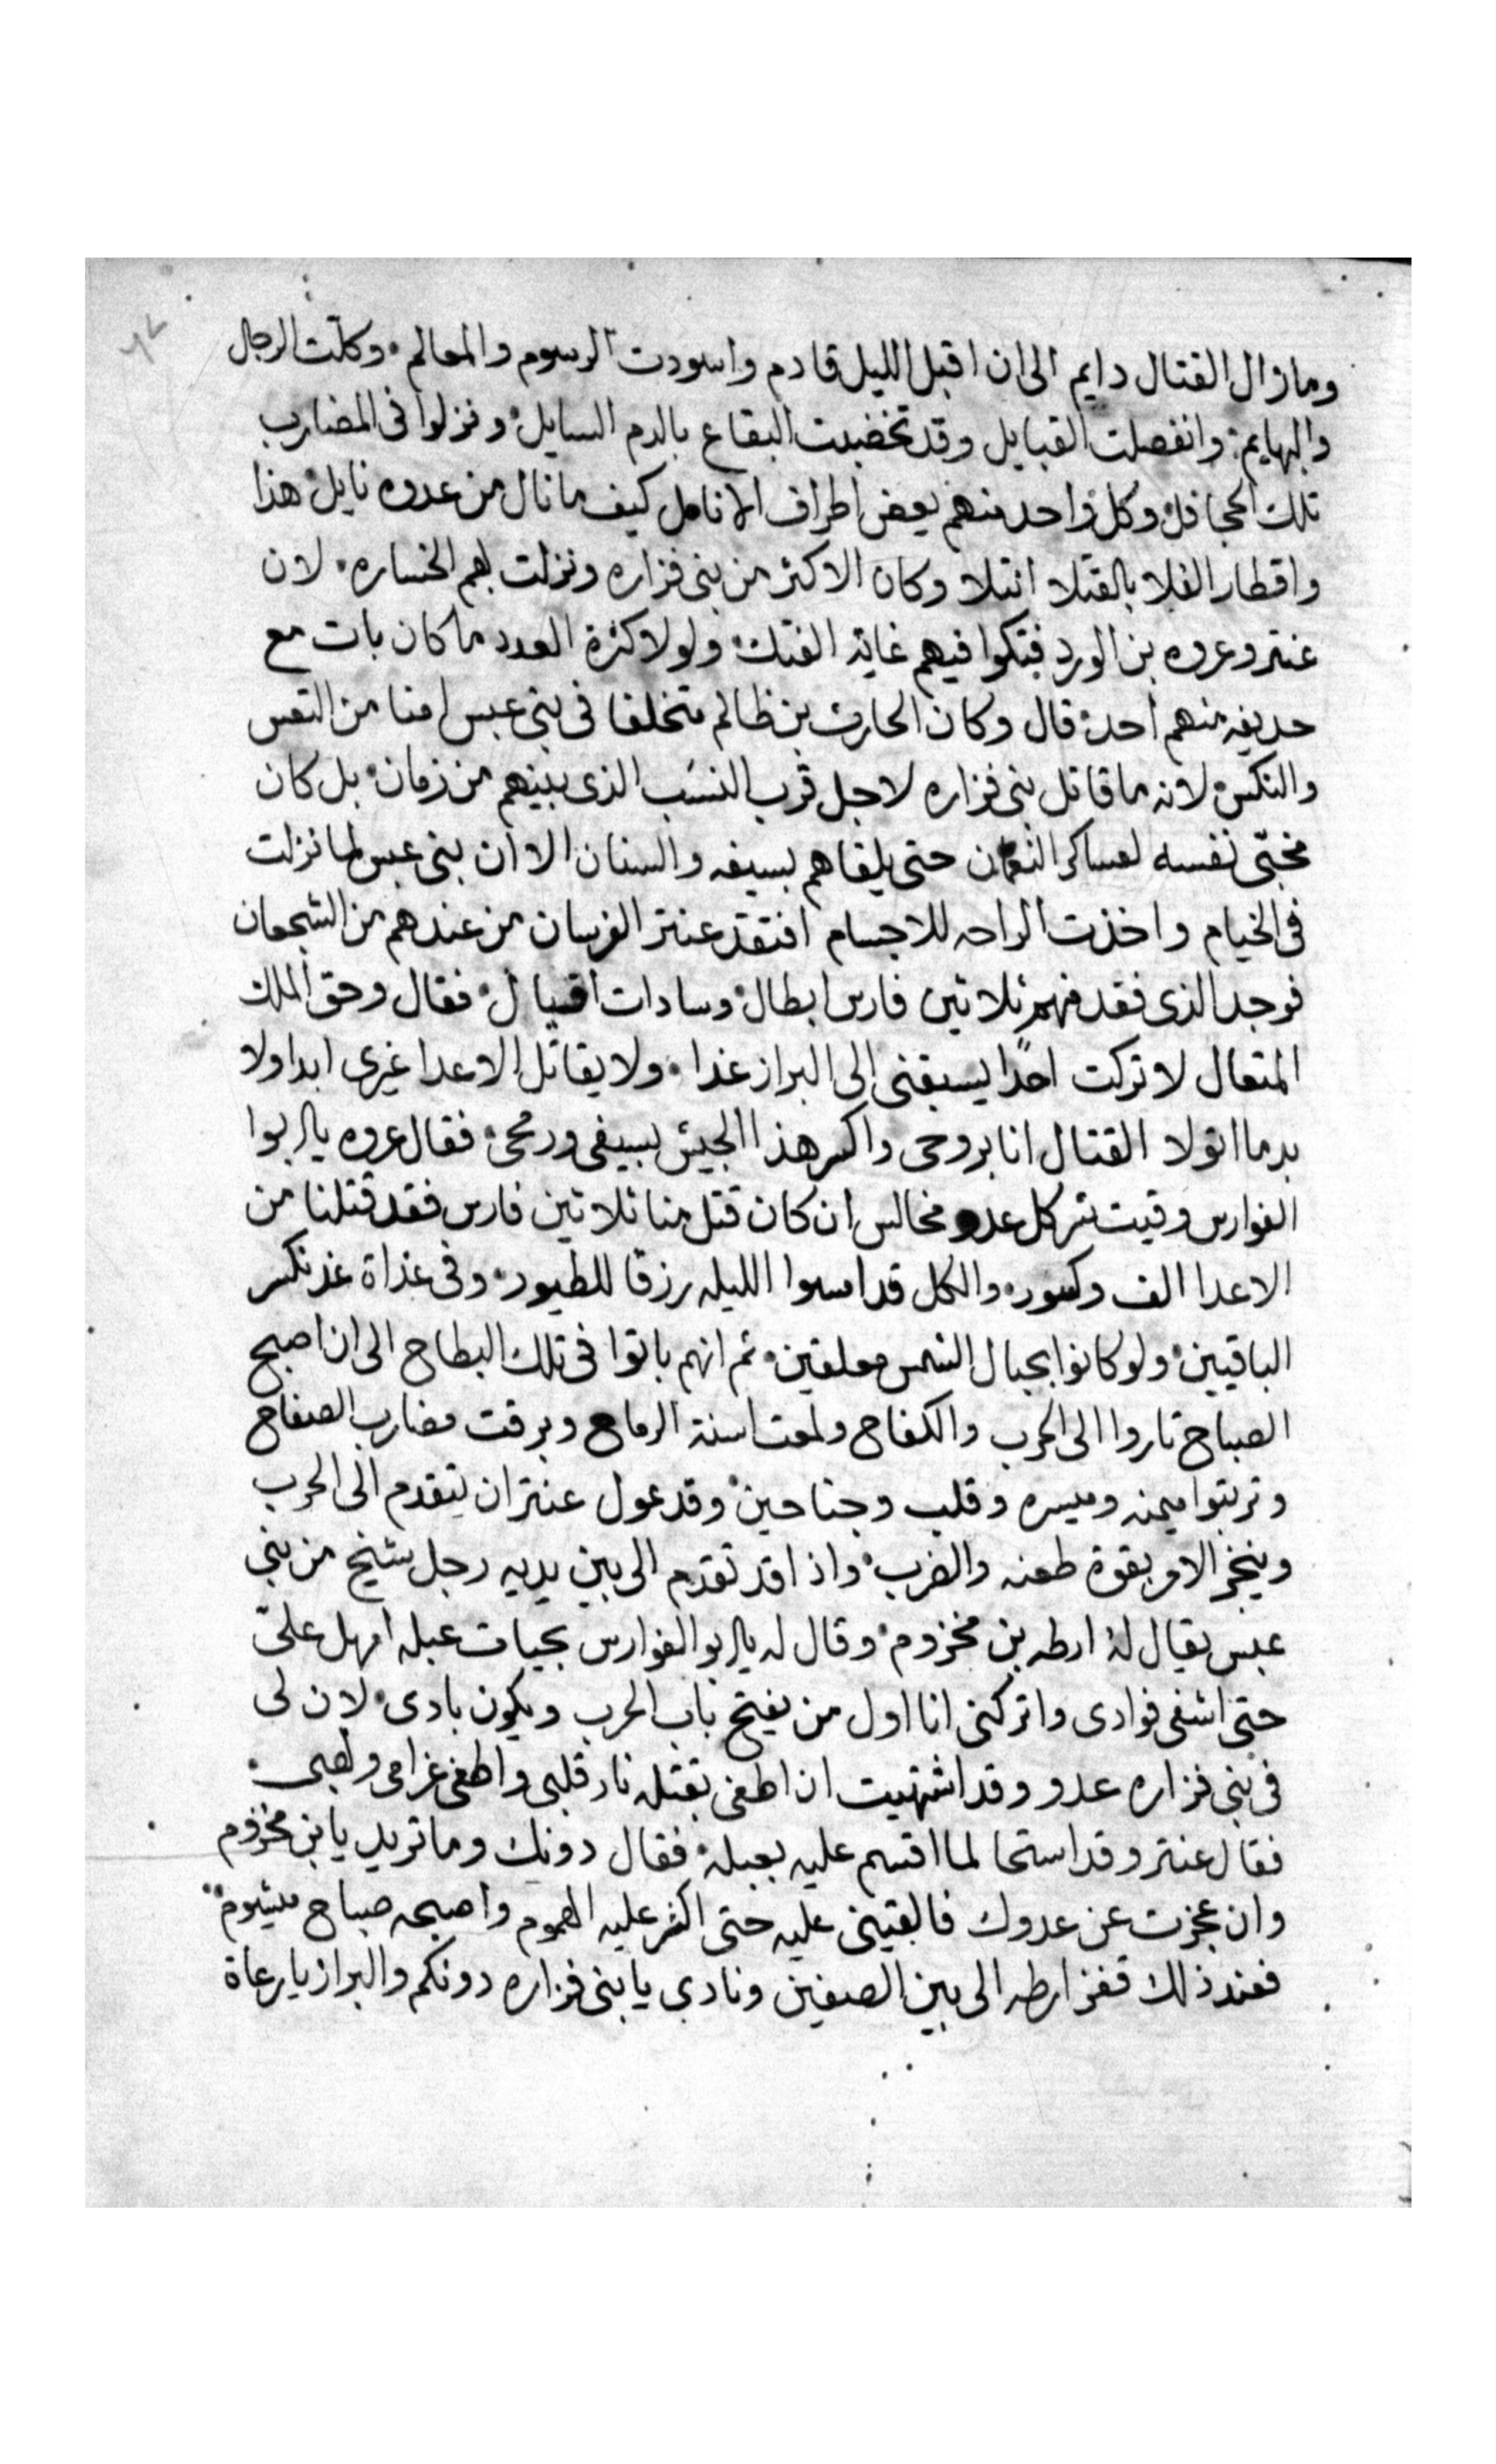 ٦٧
ومازال القتال دايم الى ان اقبل الليل قادم واسودت الرسوم والمعالم. وكلّت الرجال
والبهايم. وانفصلت القبايل وقد تخضبت البقاع بالدم السايل. ونزلوا فى المضارب
تلك الجحافل. وكل واحد منهم يعض اطراف الانامل كيف ما نال من عدوه نايل. هذا
واقطار الفلا بالقتلا امتلا وكان الاكثر من بنى فزاره ونزلت بهم الخساره. لان
عنتر وعروه بن الورد فتكوا فيهم غاية الفتك. ولولا كثرة العدد ما كان بات مع
حديفه منهم احد. قال وكان الحارث بن ظالم متخلفا فى بنى عبس امنا من التعس
والنكس. لانه ما قاتل بنى فزاره لاجل قرب النسب الذى بينهم من زمان. بل كان
مخبّى نفسه لعساكر النعمان حتى يلقاهم بسيفه والسنان الا ان بنى عبس لما نزلت
فى الخيام واخذت الراحه للاجسام افتقد عنتر الفرسان من عندهم من الشجعان
فوجد الذى فقد منهم ثلاثين فارس ابطال. وسادات اقيال. فقال وحق الملك
المتعال لا تركت احدًا يسبقنى الى البراز غدا. ولا يقاتل الاعدا غيرى ابدا ولا
بد ما اتولا القتال انا بروحى واكسر هذا الجيش بسيفى ورمحى. فقال عروه يابو
الفوارس وقيت شر كل عدو مخالس ان كان قتل منا ثلاثين فارس فقد قتلنا من
الاعدا الف وكسور. والكل قد امسوا الليله رزقا للطيور. وفى غداة غد نكسر
الباقيين. ولو كانوا بحبال الشمس معلقين. ثم انهم باتوا فى تلك البطاح الى ان اصبح
الصباح ثاروا الى الحرب والكفاح ولمعت اسنة الرماح وبرقت مضارب الصفاح
وترتبوا ميمنه وميسره وقلب وجناحين. وقد عول عنتر ان يتقدم الى الحرب
وينجز الامر بقوة طعنه والضرب. واذا قد تقدم الى بين يديه رجل شيخ من بنى
عبس يقال له ارطه بن مخزوم. وقال له يابو الفوارس بحيات عبله امهل علىّ
حتى اشفى فوادى واتركنى انا اول من يفتح باب الحرب ويكون بادى. لان لى
فى بنى فزاره عدو وقد اشتهيت ان اطفى بقتله نار قلبى واطفى غرامى ولهبى.
فقال عنتر وقد استحا لما اقسم عليه بعبله. فقال دونك وما تريد يا بن مخزوم
وان عجزت عن عدوك فالقينى عليه حتى اكثر عليه الهموم واصبحه صباح ميشوم
فعند ذلك قفز ارطه الى بين الصفين ونادى يا بنى فزاره دونكم والبراز يا رعاة